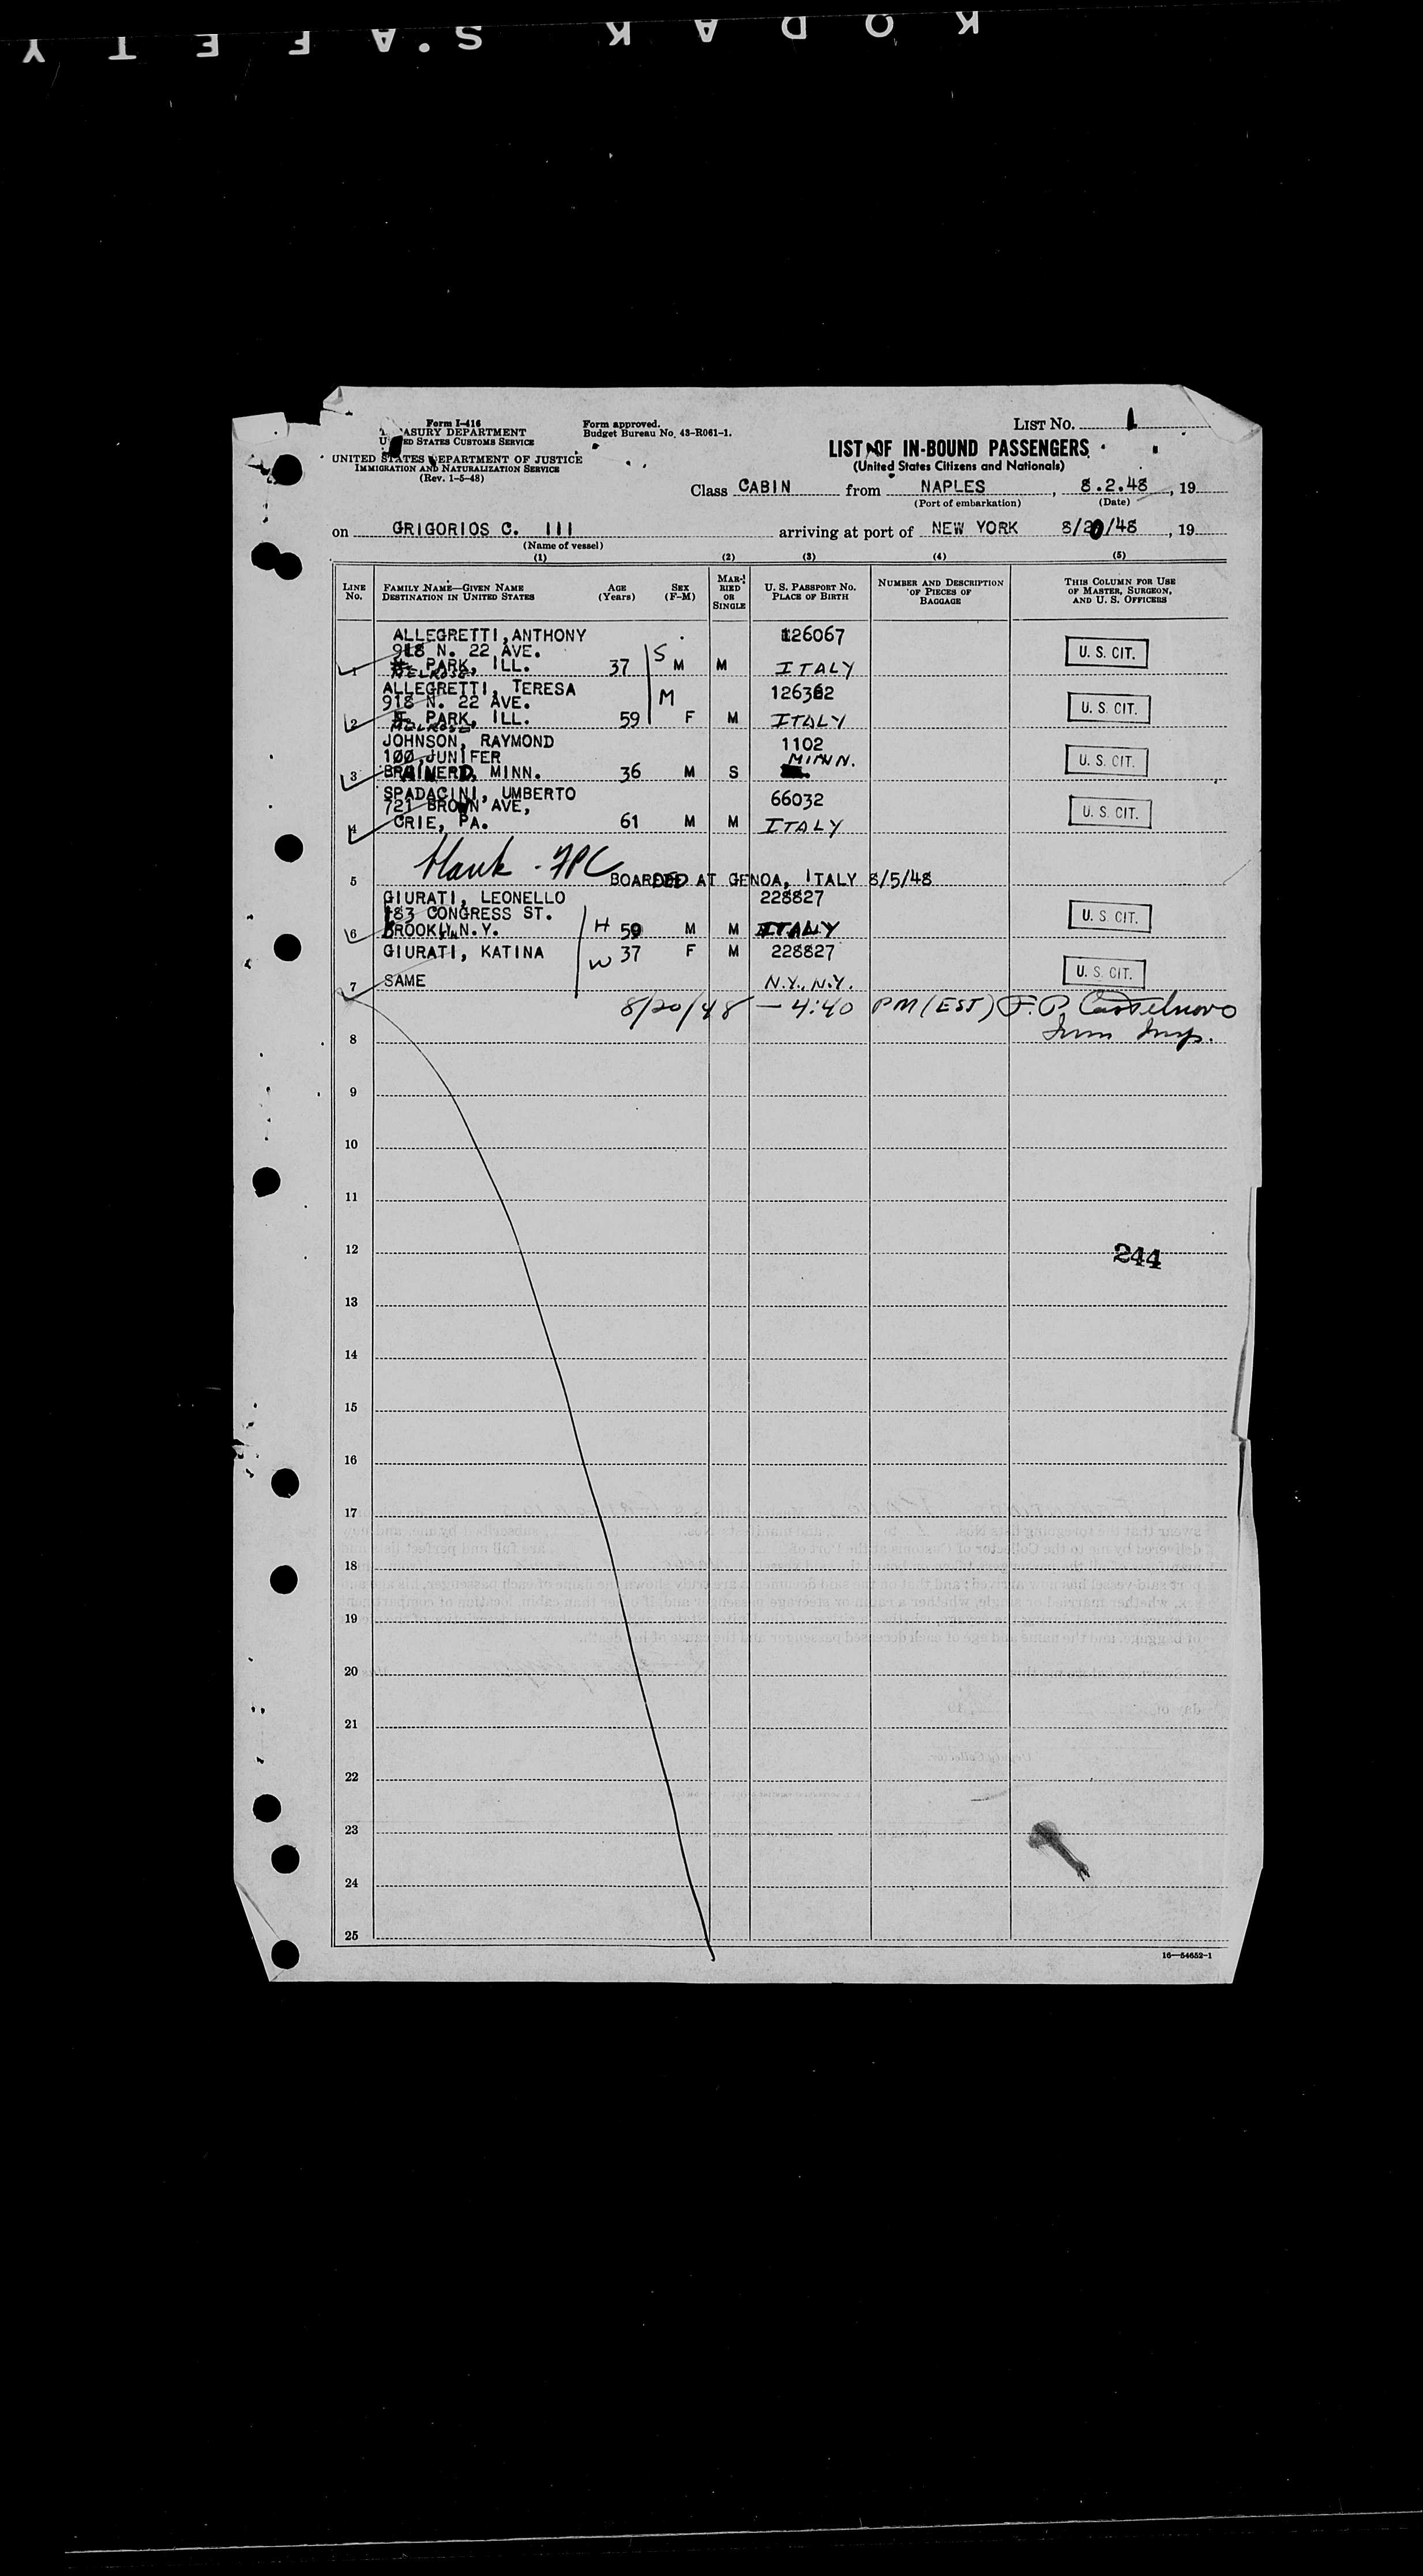 KODAK SAFETY
Form I-416
TREASURY DEPARTMENT
UNITED STATES CUSTOMS SERVICE
UNITED STATES DEPARTMENT OF JUSTICE
IMMIGRATION AND NATURALIZATION SERVICE
(Rev. 1-5-48)
Form approved.
Budget Bureau No. 43-R061-1.
LIST No. 1
LIST OF IN-BOUND PASSENGERS
(United States Citizens and Nationals)
Class CABIN from NAPLES, 8.2.48, 19
(Port of embarkation) (Date)
on GRIGORIOS C. III arriving at port of NEW YORK 8/20/48, 19
(Name of vessel)
(1) (2) (3) (4) (5)
LINE No. FAMILY NAME—GIVEN NAME DESTINATION IN UNITED STATES AGE (Years) SEX (F-M) MARRIED OR SINGLE U. S. PASSPORT No. PLACE OF BIRTH NUMBER AND DESCRIPTION OF PIECES OF BAGGAGE THIS COLUMN FOR USE OF MASTER, SURGEON, AND U. S. OFFICERS
ALLEGRETTI, ANTHONY 126067
918 N. 22 AVE. S U. S. CIT.
1 PARK, ILL. 37 M M ITALY
MELROSE
ALLEGRETTI, TERESA 126362
918 N. 22 AVE. M U. S. CIT.
2 PARK, ILL. 59 F M ITALY
MELROSE
JOHNSON, RAYMOND 1102
100 JUNIFER MINN. U. S. CIT.
3 BRAINERD, MINN. 36 M S
SPADACINI, UMBERTO 66032
721 BROWN AVE, U. S. CIT.
4 CRIE, PA. 61 M M ITALY
blank - FPC
5 BOARDED AT GENOA, ITALY 8/5/48
GIURATI, LEONELLO 228827
183 CONGRESS ST. U. S. CIT.
6 BROOKL.N.Y. H 59 M M ITALY
GIURATI, KATINA W 37 F M 228827
7 SAME N.Y., N.Y. U. S. CIT.
8/20/48 — 4:40 PM (EST) F. P. Castelnuovo
8 Imm Insp.
9
10
11
12 244
13
14
15
16
17
18
19
20
21
22
23
24
25
16—54652-1